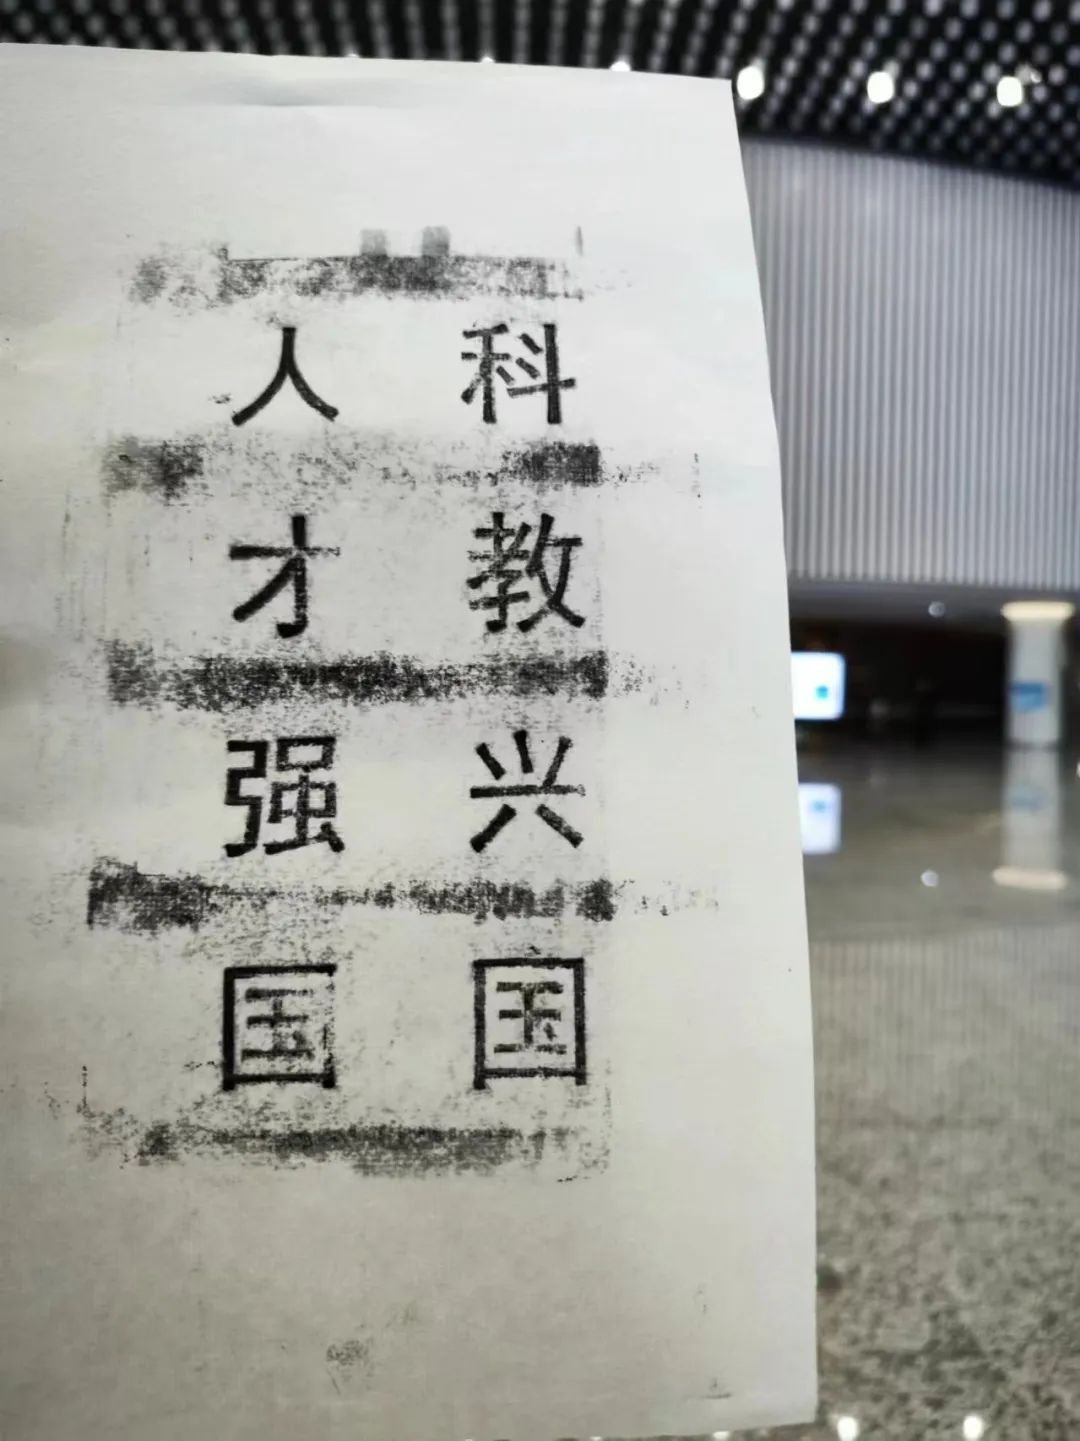 科教兴国
人才强国